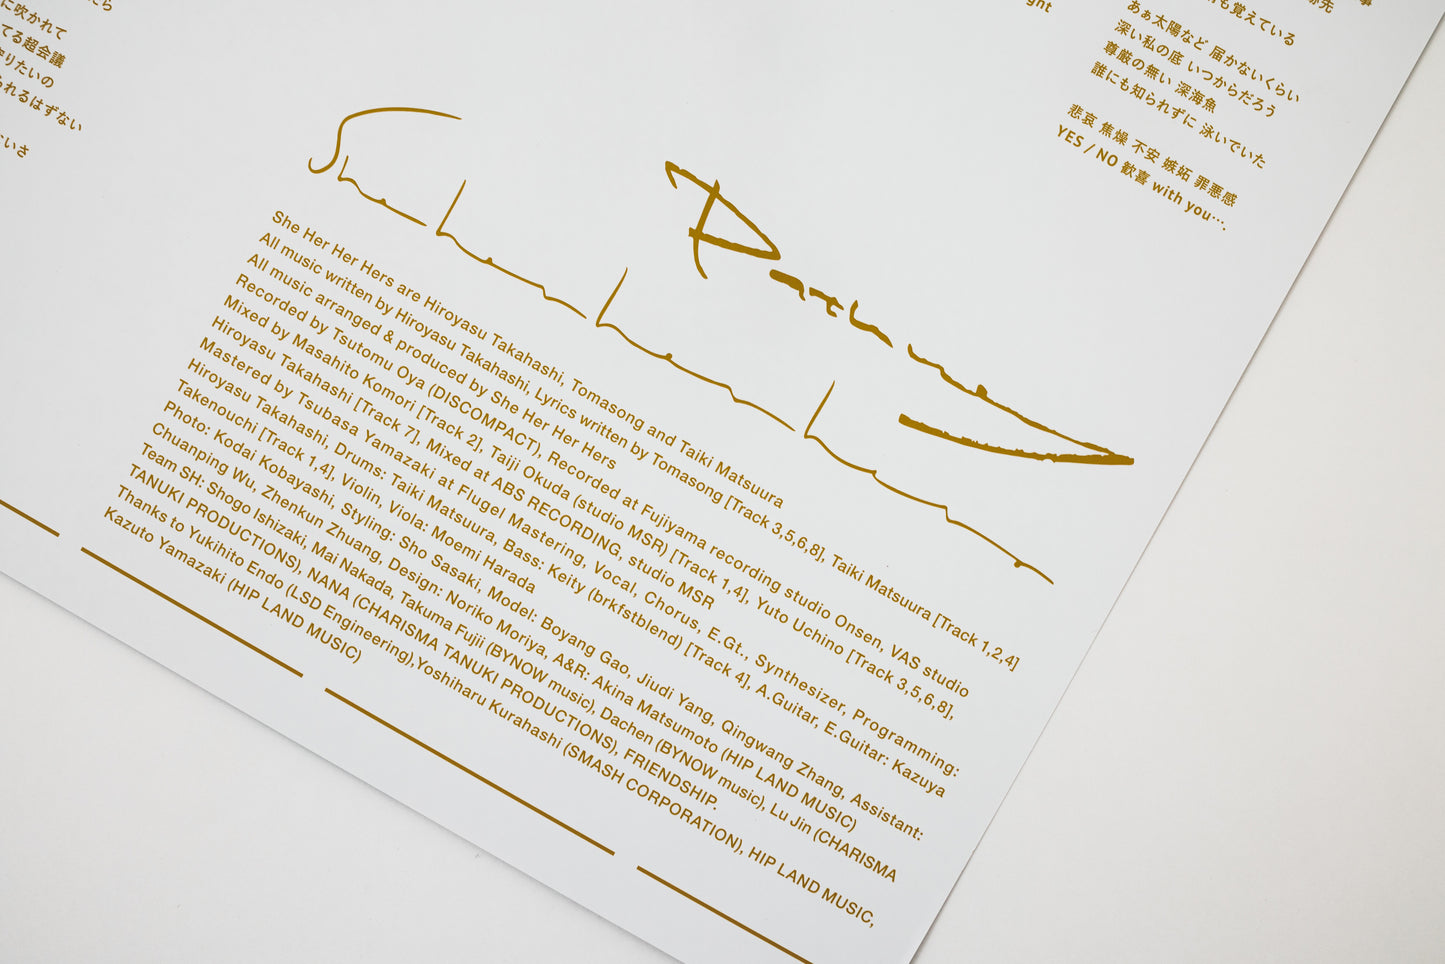 に吹かれて
てる超会議
守りたいの
られるはずない
ght
も覚えている
あぁ太陽など 届かないくらい
深い私の底 いつからだろう
尊厳の無い 深海魚
誰にも知られずに 泳いでいた
悲哀 焦燥 不安 嫉妬 罪悪感
YES / NO 歓喜 with you….
She Her Her Hers are Hiroyasu Takahashi, Tomasong and Taiki Matsuura
All music written by Hiroyasu Takahashi, Lyrics written by Tomasong [Track 3,5,6,8], Taiki Matsuura [Track 1,2,4]
All music arranged & produced by She Her Her Hers
Recorded by Tsutomu Oya (DISCOMPACT), Recorded at Fujiyama recording studio Onsen, VAS studio
Mixed by Masahito Komori [Track 2], Taiji Okuda (studio MSR) [Track 1,4], Yuto Uchino [Track 3,5,6,8],
Hiroyasu Takahashi [Track 7], Mixed at ABS RECORDING, studio MSR
Mastered by Tsubasa Yamazaki at Flugel Mastering, Vocal, Chorus, E.Gt., Synthesizer, Programming:
Hiroyasu Takahashi, Drums: Taiki Matsuura, Bass: Keity (brkfstblend) [Track 4], A.Guitar, E.Guitar: Kazuya
Takenouchi [Track 1,4], Violin, Viola: Moemi Harada
Photo: Kodai Kobayashi, Styling: Sho Sasaki, Model: Boyang Gao, Jiudi Yang, Qingwang Zhang, Assistant:
Chuanping Wu, Zhenkun Zhuang, Design: Noriko Moriya, A&R: Akina Matsumoto (HIP LAND MUSIC)
Team SH: Shogo Ishizaki, Mai Nakada, Takuma Fujii (BYNOW music), Dachen (BYNOW music), Lu Jin (CHARISMA
TANUKI PRODUCTIONS), NANA (CHARISMA TANUKI PRODUCTIONS), FRIENDSHIP.
Thanks to Yukihito Endo (LSD Engineering),Yoshiharu Kurahashi (SMASH CORPORATION), HIP LAND MUSIC,
Kazuto Yamazaki (HIP LAND MUSIC)